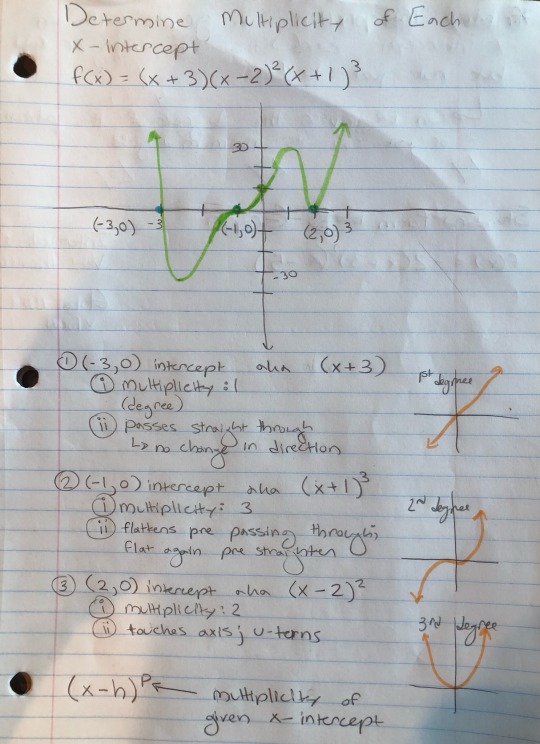 Determine Multiplicity of Each
x-intercept
f(x) = (x + 3)(x - 2)²(x + 1)³
30
(-3,0) -3 (-1,0) (2,0) 3
-30
① (-3,0) intercept aka (x+3)
ⓘ multiplicity : 1
(degree)
ⓘⓘ passes straight through
↳ no change in direction
1st degree
② (-1,0) intercept aka (x+1)³
ⓘ multiplicity: 3
ⓘⓘ flattens pre passing through;
flat again pre straighten
2nd degree
③ (2,0) intercept aka (x-2)²
ⓘ multiplicity: 2
ⓘⓘ touches axis; u-terns
3rd degree
(x-h)ᴾ ← multiplicity of
given x-intercept